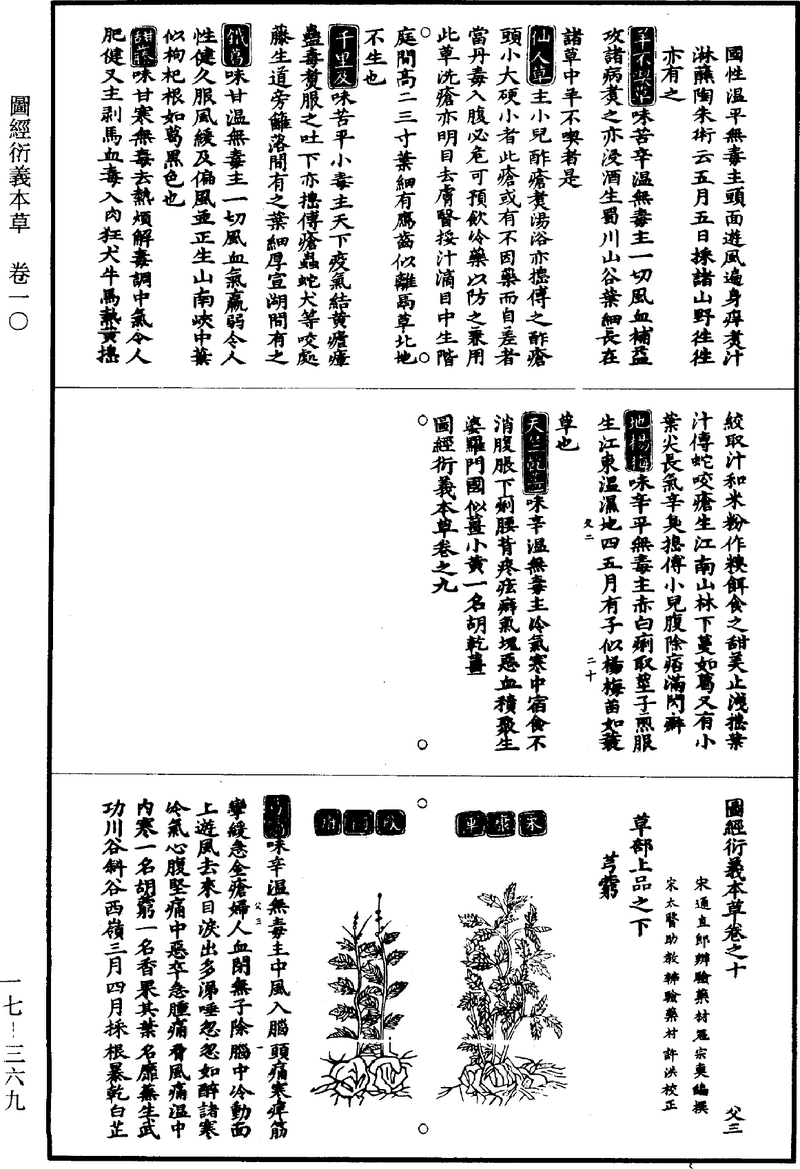 國性溫平無毒主頭面遊風遍身痒煑汁
淋蘸陶朱術云五月五日採諸山野往往
亦有之
羊不喫草味苦辛溫無毒主一切風血補益
攻諸病煑之亦浸酒生蜀川山谷葉細長在
諸草中羊不喫者是
仙人草主小兒酢瘡煑湯浴亦搗傅之酢瘡
頭小大硬小者此瘡或有不因藥而自差者
當丹毒入腹必危可預飲冷藥以防之兼用
此草洗瘡亦明目去膚瞖挼汁滴目中生階
庭間高二三寸葉細有鴈齒似離鬲草北地
不生也
千里及味苦平小毒主天下疫氣結黃瘧瘴
蠱毒煑服之吐下亦搗傅瘡蟲蛇犬等咬處
藤生道旁籬落間有之葉細厚宣湖間有之
味甘溫無毒主一切風血氣羸弱令人
性健久服風緩及偏風並正生山南峽中葉
似枸杞根如葛黑色也
甜藤味甘寒無毒去熱煩解毒調中氣令人
肥健又主剥馬血毒入肉狂犬牛馬熱黃搗
絞取汁和米粉作糗餌食之甜美止洩搗葉
汁傅蛇咬瘡生江南山林下蔓如葛又有小
葉尖長氣辛臭搗傅小兒腹除痞滿閃癖
地楊梅味辛平無毒主赤白痢取莖子煎服
生江東溫濕地四五月有子似楊梅苗如蓑
草也
味辛溫無毒主冷氣寒中宿食不
消腹脹下痢腰背疼痃癖氣塊惡血積聚生
婆羅門國似薑小黃一名胡乾薑
圖經衍義本草卷之九
圖經衍義本草卷之十
宋通直郎辨驗藥材寇宗奭編撰
宋太醫助教辨驗藥材許洪校正
父三
草部上品之下
芎藭
味辛溫無毒主中風入腦頭痛寒痺筋
攣緩急金瘡婦人血閉無子除腦中冷動面
上遊風去來目淚出多涕唾忽忽如醉諸寒
冷氣心腹堅痛中惡卒急腫痛脅風痛溫中
內寒一名胡藭一名香果其葉名蘼蕪生武
功川谷斜谷西嶺三月四月採根暴乾白芷
圖經衍義本草 卷一〇
一七－三六九